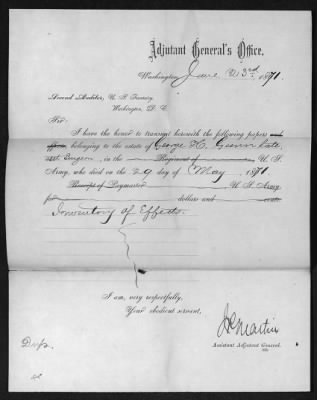 Adjutant General's Office,
Washington June 23rd, 1871.
Second Auditor, U. S. Treasury
Washington, D. C.
Sir:
I have the honor to transmit herewith the following papers and
effects belonging to the estate of George H. late
Asst. Surgeon, in the Regiment of U. S.
Army, who died on the 29 day of May, 1871.
Receipt of Paymaster U. S. Army
for dollars and cents
Inventory of Effects.
I am, very respectfully,
Your obedient servant,
Martin
Assistant Adjutant General.
Dup.